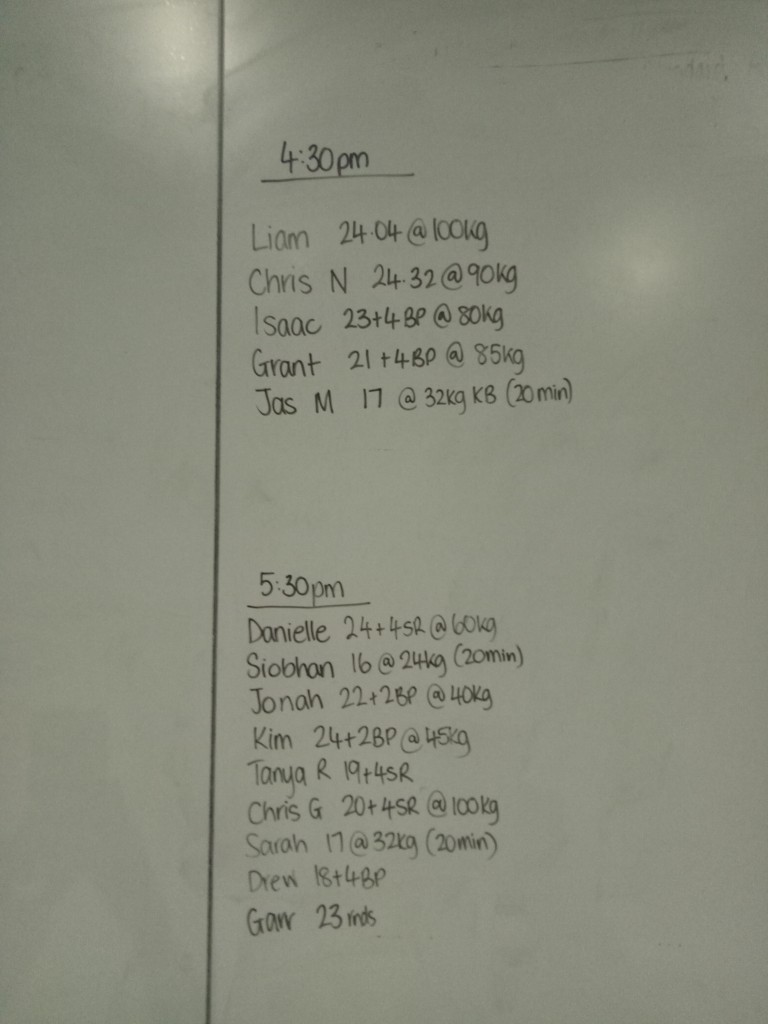 4:30pm
Liam 24.04 @ 100kg
Chris N 24.32 @ 90kg
Isaac 23+4BP @ 80kg
Grant 21+4BP @ 85kg
Jas M 17 @ 32kg KB (20min)
5:30pm
Danielle 24+4SR @ 60kg
Siobhan 16 @ 24kg (20min)
Jonah 22+2BP @ 40kg
Kim 24+2BP @ 45kg
Tanya R 19+4SR
Chris G 20+4SR @ 100kg
Sarah 17 @ 32kg (20min)
Drew 18+4BP
23 rnds